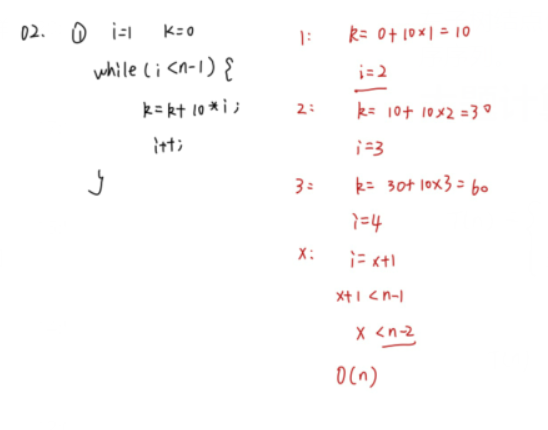 02. ① i=1 k=0
while (i<n-1) {
k=k+10*i;
i++;
}
1: k= 0+10×1=10
i=2
2: k= 10+10×2=30
i=3
3: k= 30+10×3=60
i=4
x: i= x+1
x+1<n-1
x <n-2
O(n)